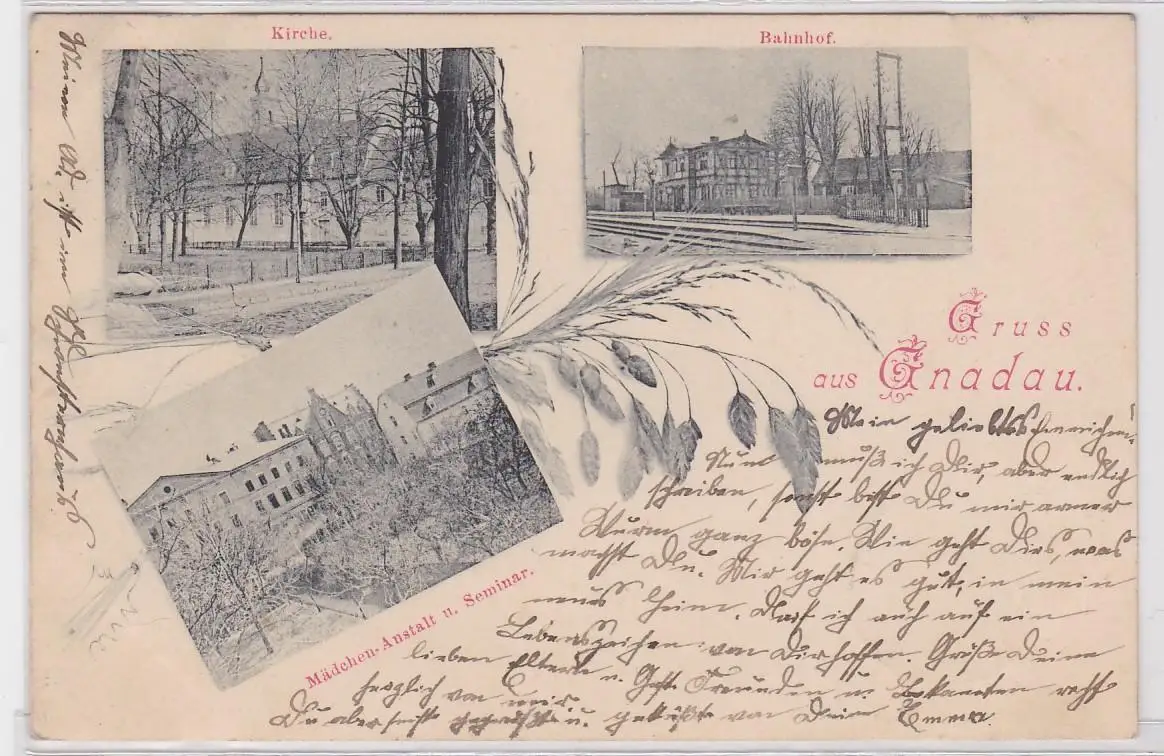 Kirche.
Bahnhof.
Gruss
aus Gnadau.
Mädchen-Anstalt u. Seminar.
Mein geliebtes
Nun muß ich Dir, aber endlich
schreiben, sonst bist Du mir armer
Wurm ganz böse. Wie geht Dirs, was
machst Du. Mir geht es gut, in mein
neues Heim. Darf ich auch auf ein
Lebenszeichen von Dir hoffen. Grüße Deine
lieben Eltern u. Gesch. Freunden u. Bekannten recht
herzlich von mir.
Du aber seist gegrüßt u. geküßt von Dein Emma.
Meine Ad. ist im